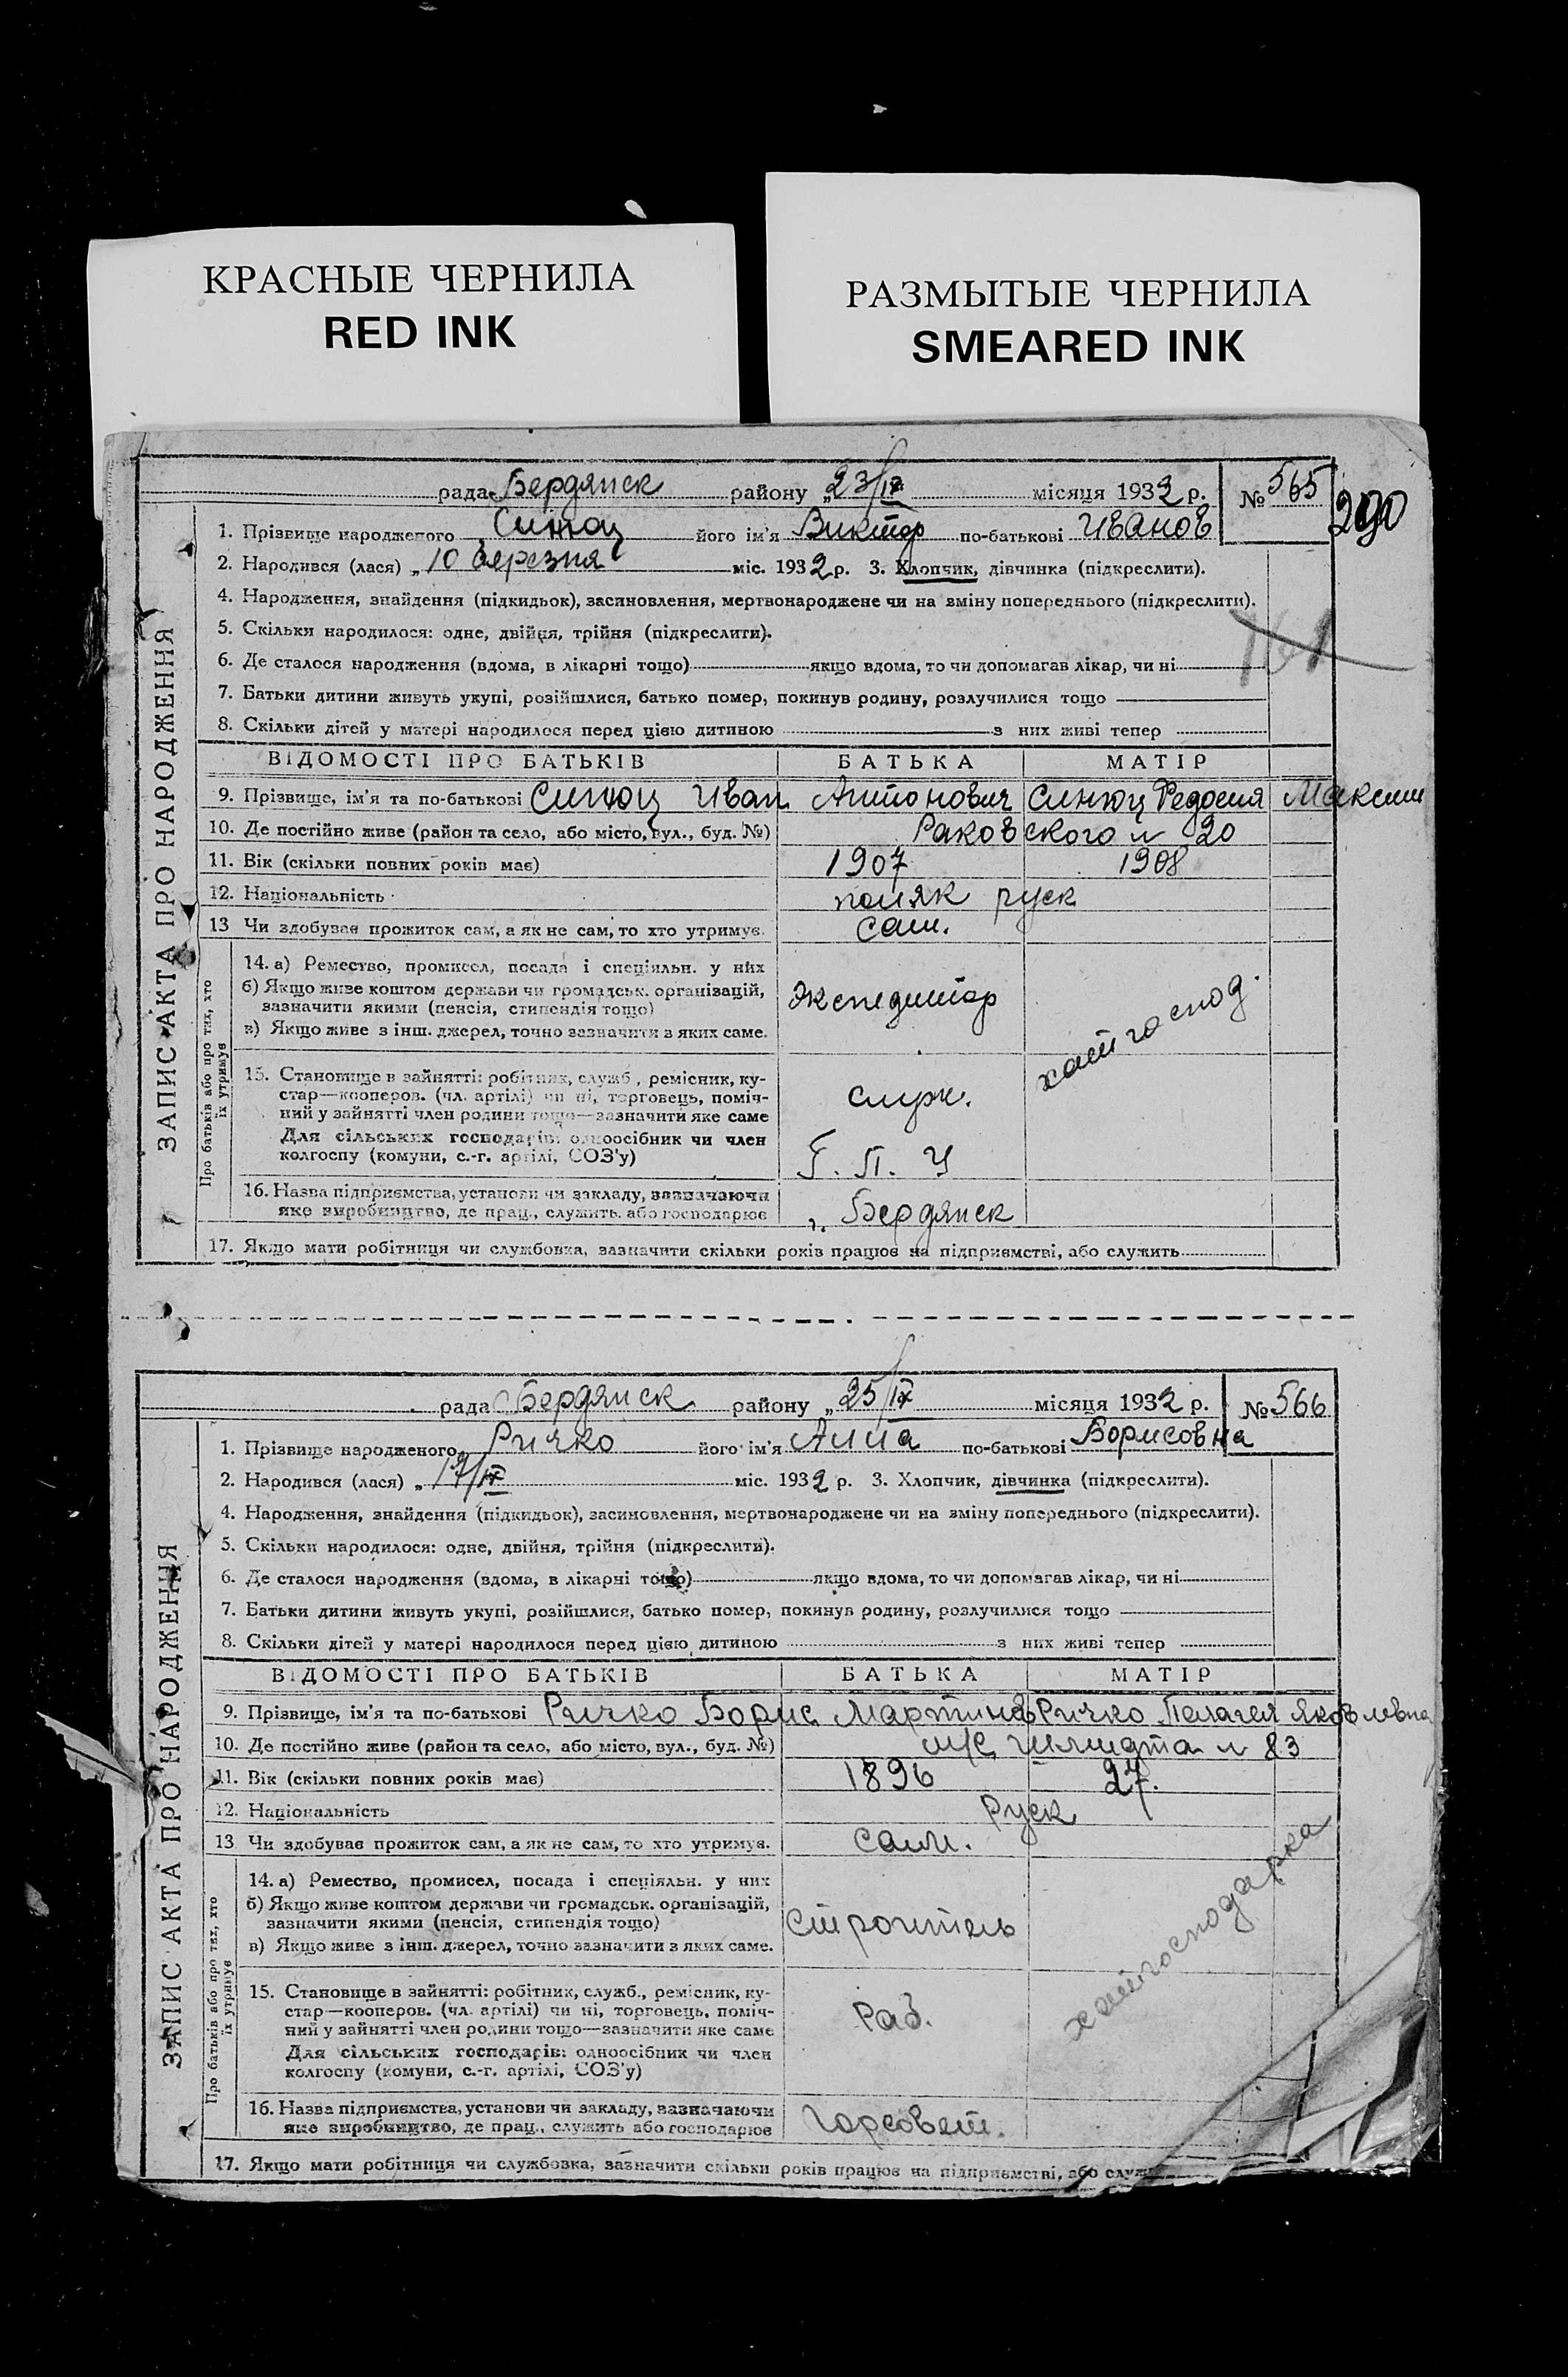 КРАСНЫЕ ЧЕРНИЛА
RED INK
РАЗМЫТЫЕ ЧЕРНИЛА
SMEARED INK
рада Бердянск району „23/IV місяця 1932 р. № 565
290
1. Прізвище народженого Синюц його ім'я Виктор по-батькові Иванов
2. Народився (лася) „10 березня міс. 1932 р. 3. Хлопчик, дівчинка (підкреслити).
4. Народження, знайдення (підкидьок), засиновлення, мертвонароджене чи на зміну попереднього (підкреслити).
5. Скільки народилося: одне, двійня, трійня (підкреслити).
6. Де сталося народження (вдома, в лікарні тощо) якщо вдома, то чи допомагав лікар, чи ні
7. Батьки дитини живуть укупі, розійшлися, батько помер, покинув родину, розлучилися тощо
8. Скільки дітей у матері народилося перед цією дитиною з них живі тепер
ВІДОМОСТІ ПРО БАТЬКІВ БАТЬКА МАТІР
9. Прізвище, ім'я та по-батькові Синюц Иван Антонович Синюц Федосия Максим
10. Де постійно живе (район та село, або місто, вул., буд. №) Раковского н 20
11. Вік (скільки повних років має) 1907 1908
12. Національність поляк руск
13 Чи здобував прожиток сам, а як не сам, то хто утримує. сам.
14. а) Ремество, промисел, посада і спеціяльн. у них
б) Якщо живе коштом держави чи громадськ. організацій,
зазначити якими (пенсія, стипендія тощо)
в) Якщо живе з інш. джерел, точно зазначити з яких саме.
Экспедитор
хатгоспод.
15. Становище в зайнятті: робітник, служб., ремісник, ку-
стар—кооперов. (чл. артілі) чи ні, торговець, поміч-
ний у зайнятті член родини тощо—зазначити яке саме
Для сільських господарів: одноосібник чи член
колгоспу (комуни, с.-г. артілі, СОЗ'у)
служ.
Г. П. У
16. Назва підприємства, установи чи закладу, зазначаючи
яке виробництво, де прац., служить або господарює
Бердянск
17. Якщо мати робітниця чи службовка, зазначити скільки років працює на підприємстві, або служить
ЗАПИС АКТА ПРО НАРОДЖЕННЯ
Про батьків або про тих, хто
їх утримує
рада Бердянск району „25/IV місяця 1932 р. № 566
1. Прізвище народженого Ричко його ім'я Анна по-батькові Борисовна
2. Народився (лася) „17/IV міс. 1932 р. 3. Хлопчик, дівчинка (підкреслити).
4. Народження, знайдення (підкидьок), засиновлення, мертвонароджене чи на зміну попереднього (підкреслити).
5. Скільки народилося: одне, двійня, трійня (підкреслити).
6. Де сталося народження (вдома, в лікарні тощо) якщо вдома, то чи допомагав лікар, чи ні
7. Батьки дитини живуть укупі, розійшлися, батько помер, покинув родину, розлучилися тощо
8. Скільки дітей у матері народилося перед цією дитиною з них живі тепер
ВІДОМОСТІ ПРО БАТЬКІВ БАТЬКА МАТІР
9. Прізвище, ім'я та по-батькові Ричко Борис Мартинов Ричко Пелагея Яковлевна
10. Де постійно живе (район та село, або місто, вул., буд. №) Шмидта н 83
11. Вік (скільки повних років має) 1896 27.
12. Національність Руск
13 Чи здобував прожиток сам, а як не сам, то хто утримує. сам.
14. а) Ремество, промисел, посада і спеціяльн. у них
б) Якщо живе коштом держави чи громадськ. організацій,
зазначити якими (пенсія, стипендія тощо)
в) Якщо живе з інш. джерел, точно зазначити з яких саме.
Строитель
хатгосподарка
15. Становище в зайнятті: робітник, служб., ремісник, ку-
стар—кооперов. (чл. артілі) чи ні, торговець, поміч-
ний у зайнятті член родини тощо—зазначити яке саме
Для сільських господарів: одноосібник чи член
колгоспу (комуни, с.-г. артілі, СОЗ'у)
Раб.
16. Назва підприємства, установи чи закладу, зазначаючи
яке виробництво, де прац., служить або господарює
горсовет.
17. Якщо мати робітниця чи службовка, зазначити скільки років працює на підприємстві, або служ
ЗАПИС АКТА ПРО НАРОДЖЕННЯ
Про батьків або про тих, хто
їх утримує